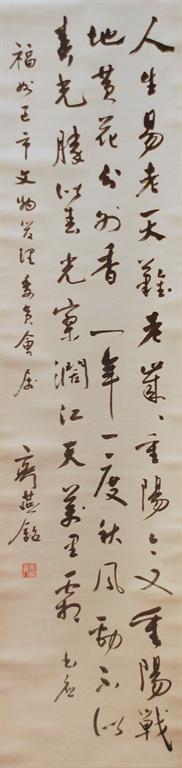 人生易老天難老歲々重陽今又重陽戰
地黄花分外香一年一度秋风勁不似
春光勝似春光寥濶江天萬里霜 书应
福州市文物管理委员會属 齊燕銘